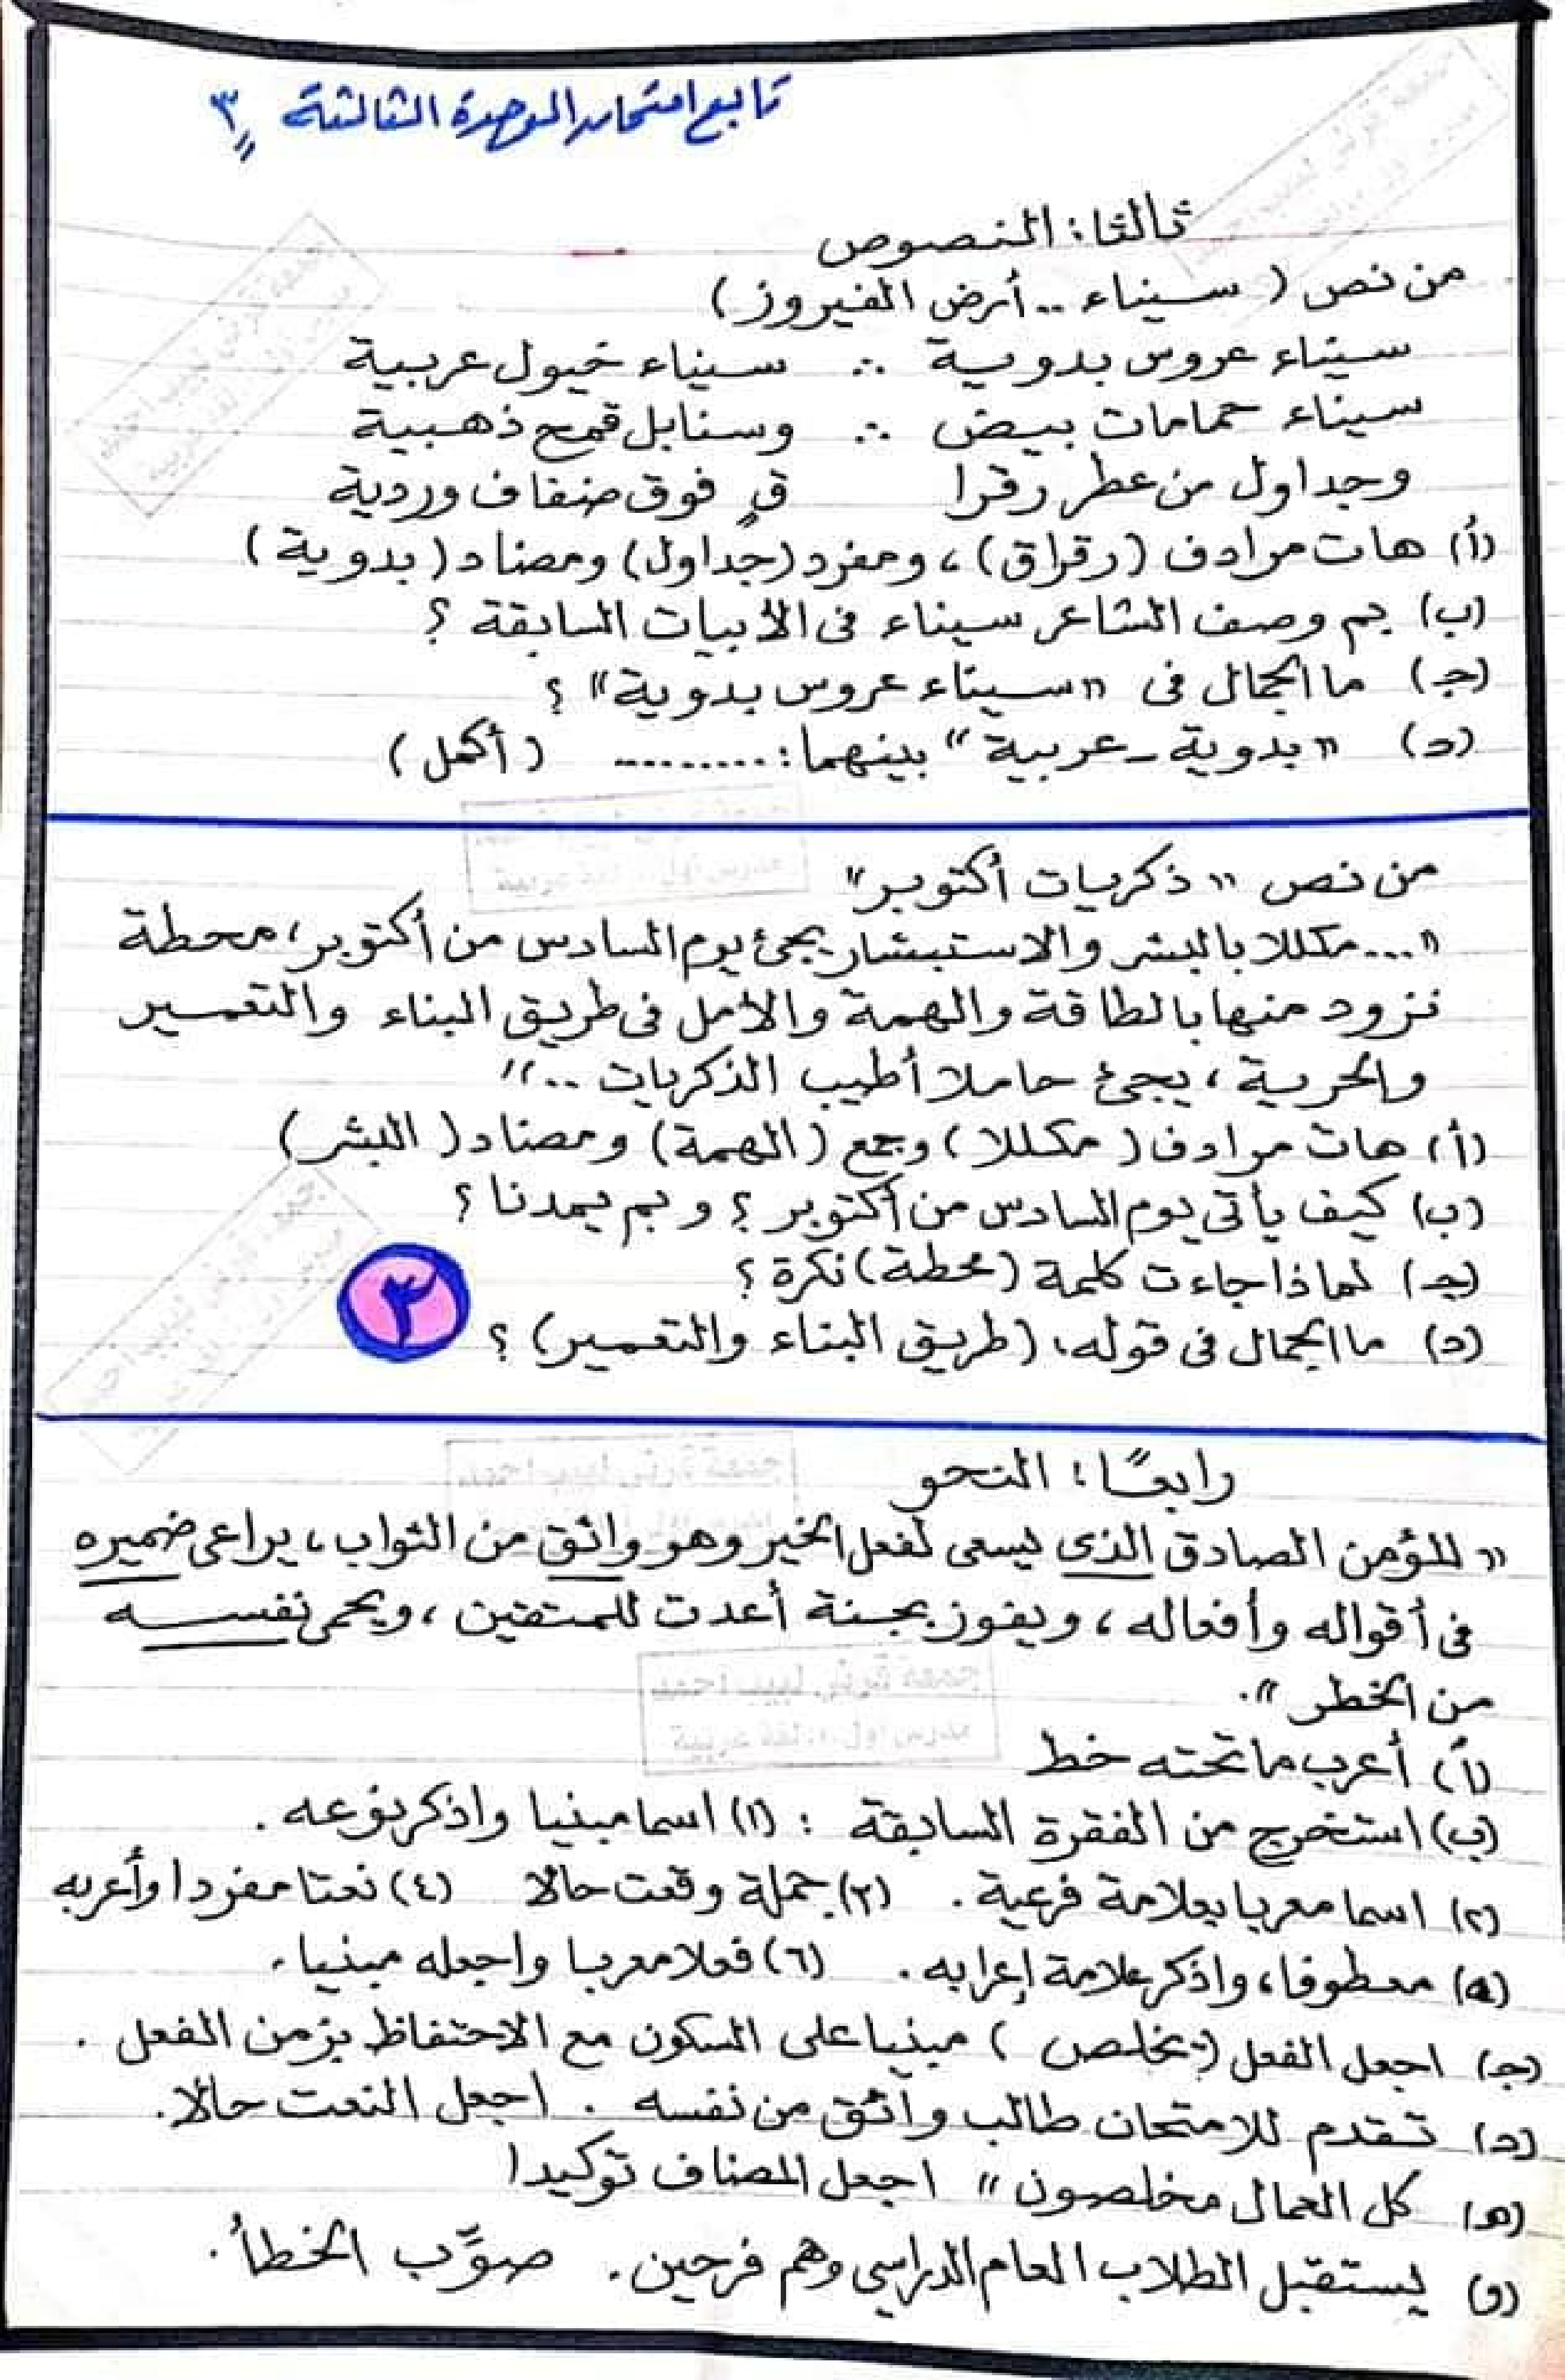 تابع امتحان الوحدة الثالثة ٣
ثالثا: النصوص
من نص ( سيناء .. أرض الفيروز )
سيناء عروس بدوية ∴ سيناء خيول عربية
سيناء حمامات بيض ∴ وسنابل قمح ذهبية
وجداول من عطر رقرا قٍ فوق ضفاف وردية
(أ) هات مرادف (رقراق) ، ومفرد (جداول) ومضاد (بدوية)
(ب) بم وصف الشاعر سيناء فى الأبيات السابقة ؟
(جـ) ما الجمال فى "سيناء عروس بدوية" ؟
(د) "بدوية - عربية" بينهما : ......... (أكمل)
من نص "ذكريات أكتوبر"
"... مكللا بالبشر والاستبشار يجئ يوم السادس من أكتوبر ، محطة
نزود منها بالطاقة والهمة والأمل فى طريق البناء والتعمير
والحرية ، يجئ حاملا أطيب الذكريات .."
(أ) هات مرادف ( مكللا ) وجمع (الهمة) ومضاد ( البشر)
(ب) كيف يأتى يوم السادس من أكتوبر ؟ وبم يمدنا ؟
(جـ) لماذا جاءت كلمة (محطة) نكرة ؟
(د) ما الجمال فى قوله، (طريق البناء والتعمير) ؟
٣
رابعًا : النحو
" للمؤمن الصادق الذى يسعى لفعل الخير وهو واثق من الثواب ، يراعى ضميره
فى أقواله وأفعاله ، ويفوز بجنة أعدت للمتقين ، ويحمى نفسه
من الخطر ".
(أ) أعرب ما تحته خط
(ب) استخرج من الفقرة السابقة : (١) اسما مبنيا واذكر نوعه .
(٢) اسما معربا بعلامة فرعية . (٣) جملة وقعت حالا (٤) نعتا مفردا وأعربه
(٥) معطوفا ، واذكر علامة إعرابه . (٦) فعلا معربا واجعله مبنيا .
(جـ) اجعل الفعل ( يخلص ) مبنيا على السكون مع الاحتفاظ بزمن الفعل .
(د) تقدم للامتحان طالب واثق من نفسه . اجعل النعت حالا .
(هـ) كل العمال مخلصون " اجعل المضاف توكيدا
(و) يستقبل الطلاب العام الدراسى وهم فرحين . صوِّب الخطأ .